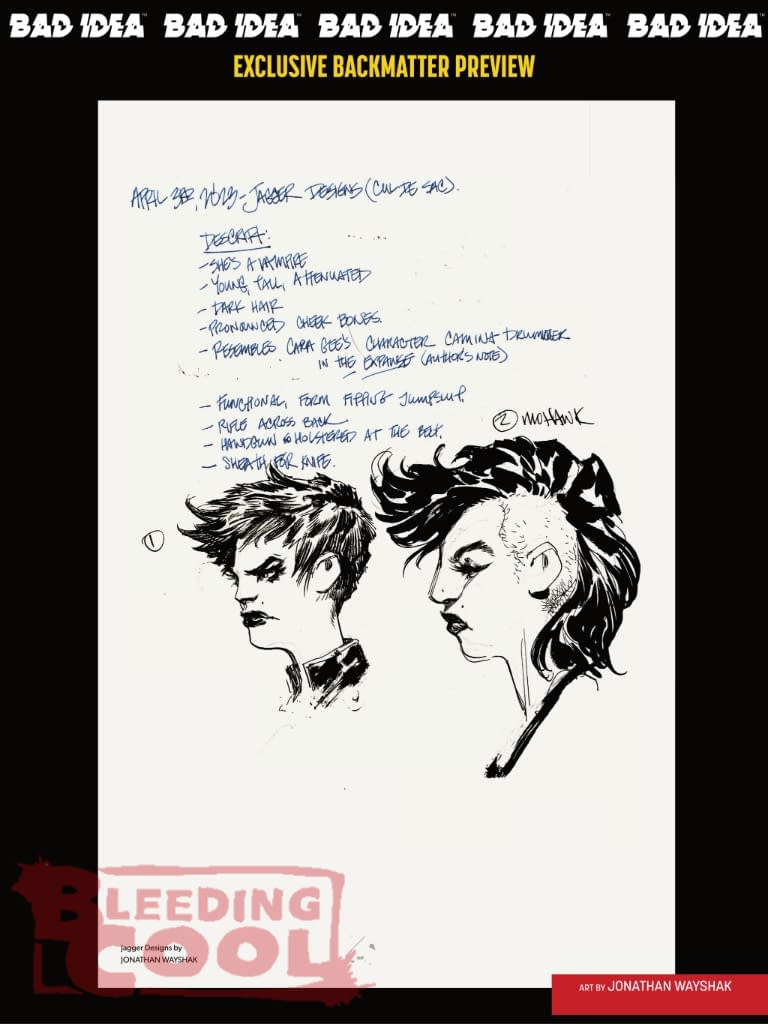 BAD IDEA™ BAD IDEA™ BAD IDEA™ BAD IDEA™ BAD IDEA™
EXCLUSIVE BACKMATTER PREVIEW
APRIL 3RD, 2023 - JAGGER DESIGNS (CUL DE SAC).
DESCRIPT:
- SHE'S A VAMPIRE
- YOUNG, TALL, ATTENUATED
- DARK HAIR
- PRONOUNCED CHEEK BONES.
- RESEMBLES CARA GEE'S CHARACTER CAMINA DRUMMER
IN THE EXPANSE (AUTHOR'S NOTE)
- FUNCTIONAL, FORM FITTING JUMPSUIT.
- RIFLE ACROSS BACK.
- HANDGUN HOLSTERED AT THE BELT.
- SHEATH FOR KNIFE.
② MOHAWK
①
BLEEDING
COOL
Jagger Designs by
JONATHAN WAYSHAK
ART BY JONATHAN WAYSHAK